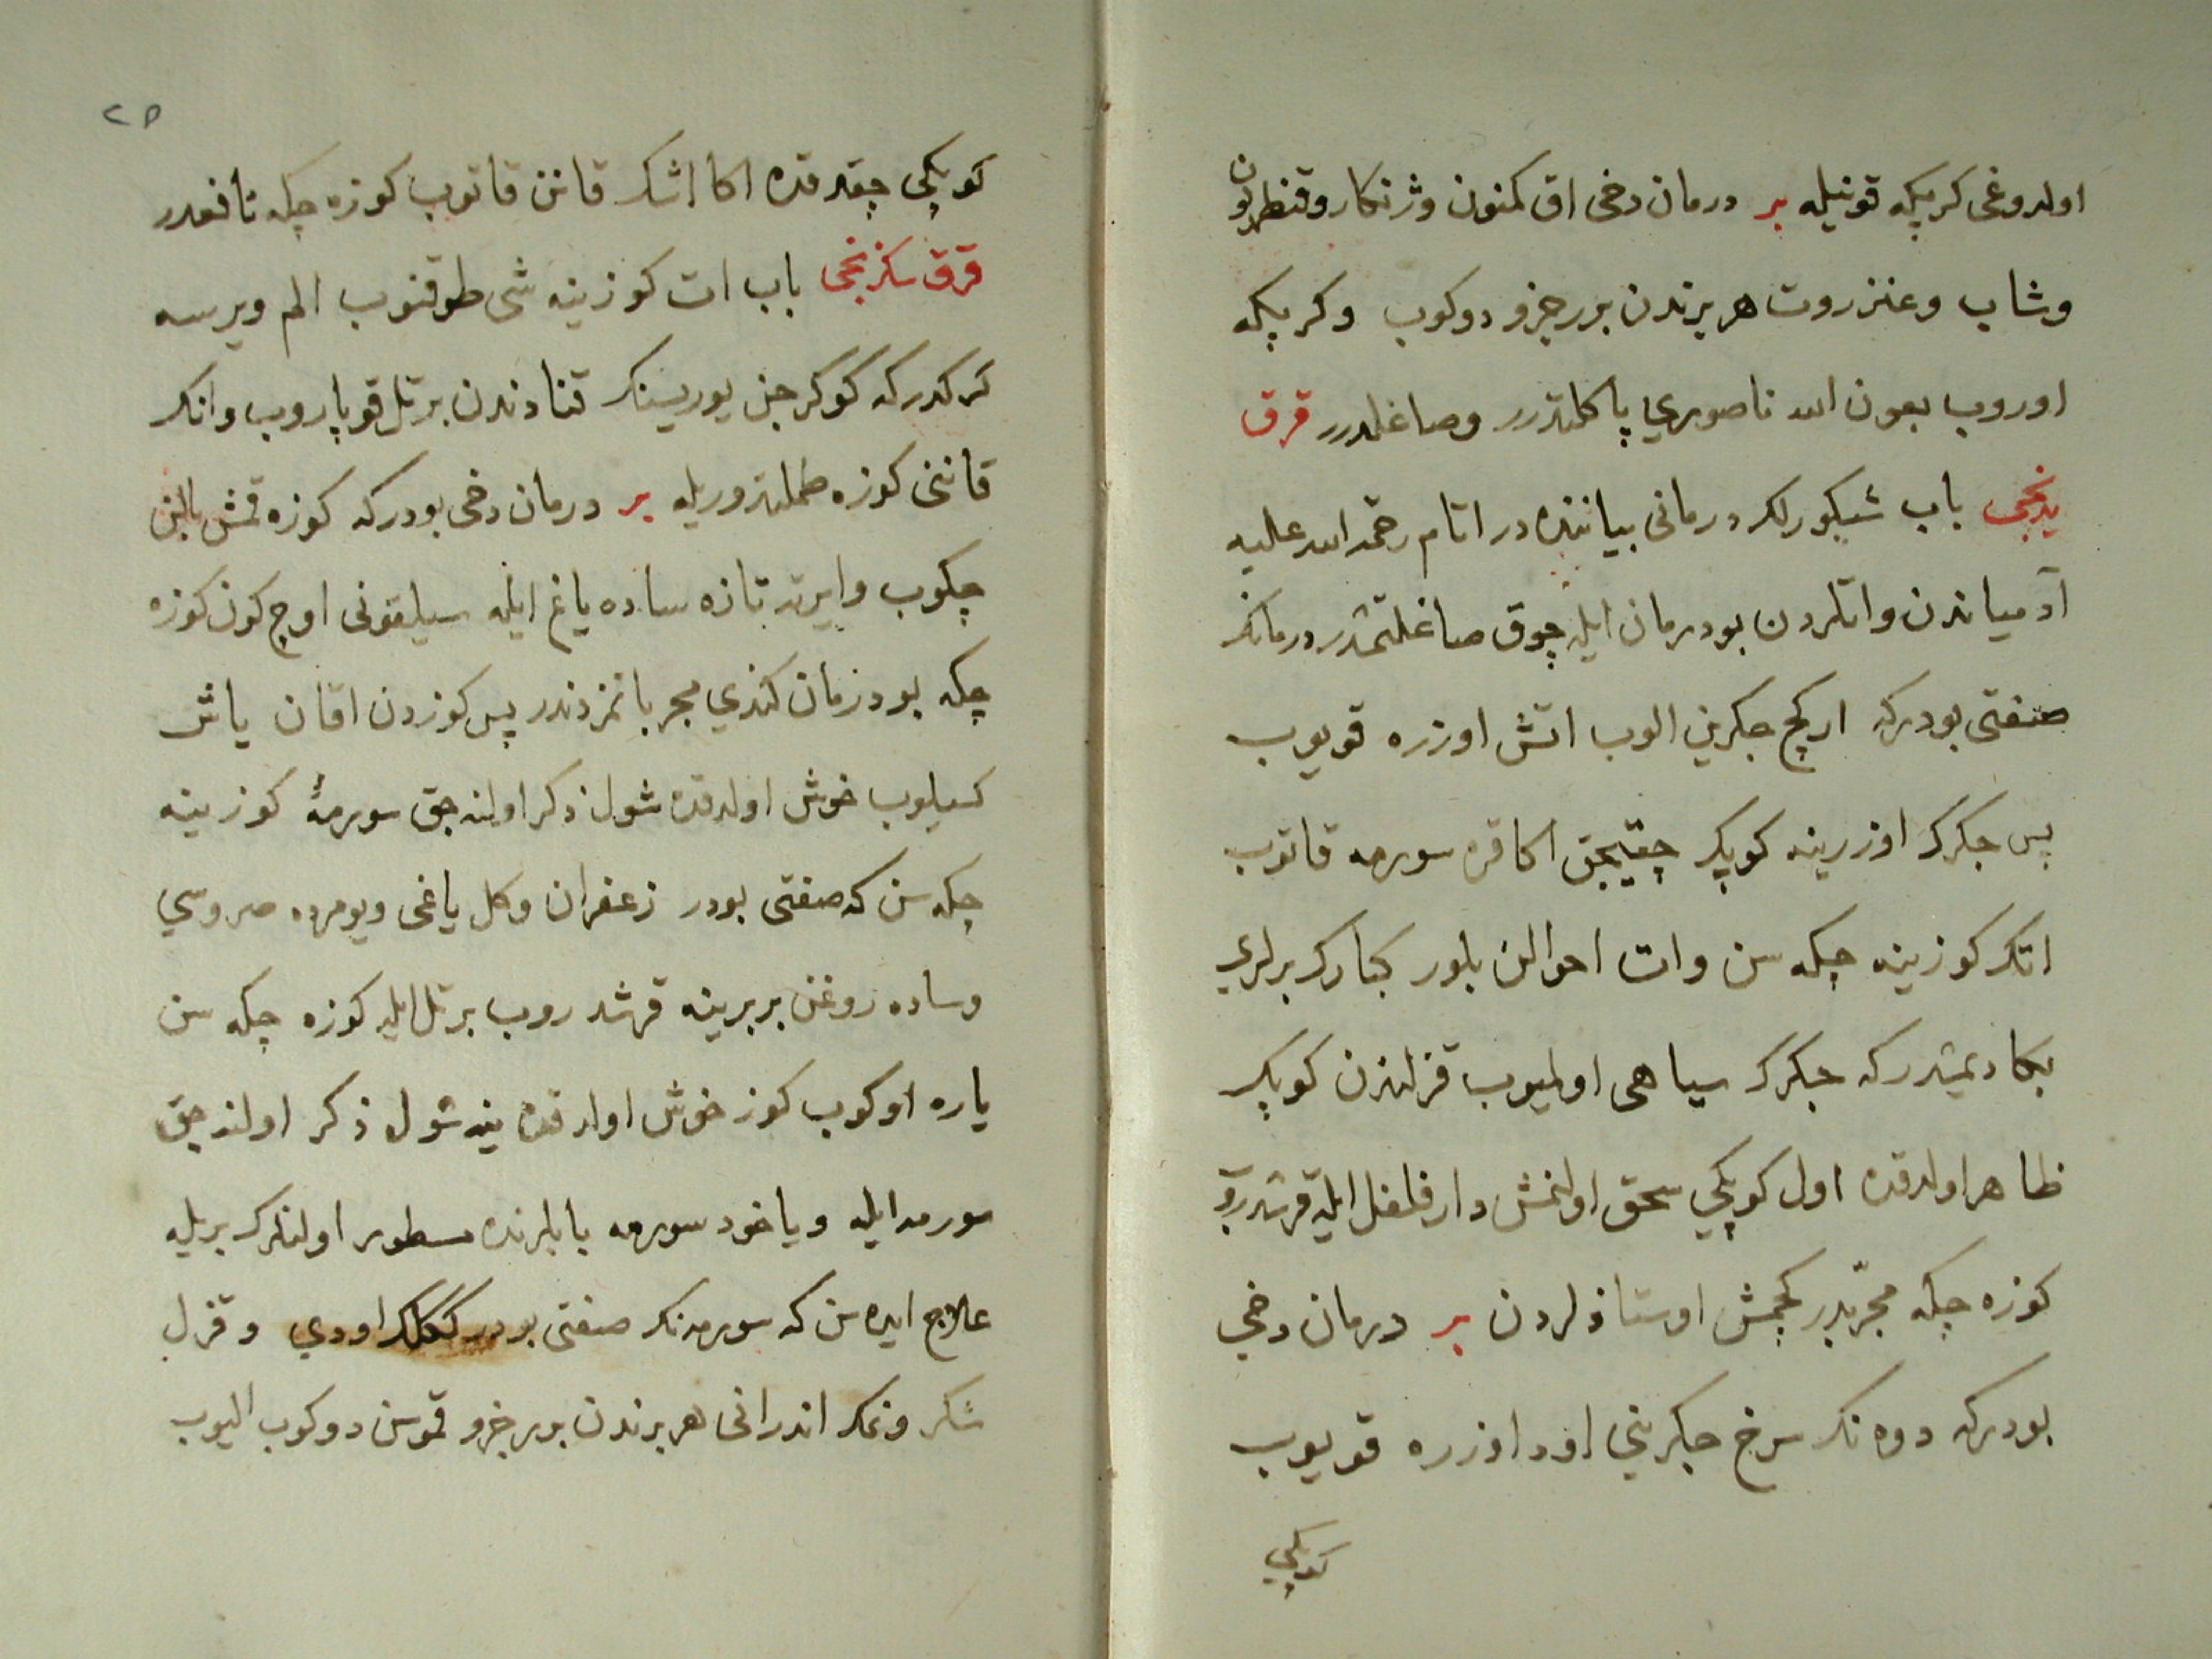 اولدوغی کرپیکه قونیله بر درمان دخی اق کمنون وژنکار وقنطریون
وشاب وعنزروت هر برندن برر جزو دوکوب وکرپیکه
اوروب بعون الله ناصوری پاکلندرر وصاغلدرر قرق
یدنجی باب شبکورلک درمانی بیاننده در اتام رحمة الله علیه
آدمیاندن واتلردن بو درمان ایله چوق صاغلتمشدر درمانک
صفتی بودرکه ارکج جکرین الوب اتش اوزره قویوب
پس جکرک اوزرینه کوپک چقیجق اکا قره سورمه قاتوب
اتک کوزینه چکه سن وات احوالن بلور کبارک برلری
بکا دیمشدرکه جکرک سیاهی اولمیوب قزلندن کوپک
ظاهر اولدقده اول کوپکی سحق اولنمش دارفلفل ایله قرشدروب
کوزه چکه مجربدر کچمش اوستاذلردن بر درمان دخی
بودرکه دوه نک سرخ جکرینی اود اوزره قویوب
کوپکی
٢٥
کوپکی چقدقده اکا اشک قانن قاتوب کوزه چکه نافعدر
قرق سکزنجی باب ات کوزینه شی طوقنوب الم ویرسه
کرکدرکه کوکرجن یوریسنک قنادندن بر تل قوپاروب وانک
قاننی کوزه طملتدوریله بر درمان دخی بودرکه کوزه قمش بالن
چکوب وایرته تازه ساده یاغ ایله سیلقونی اوچ کون کوزه
چکه بو درمان کندی مجرباتمزدندر پس کوزدن اقان یاش
کسیلوب خوش اولدقده شول ذکر اولنه جق سورمهٔ کوزینه
چکه سن که صفتی بودر زعفران وکل یاغی ویومرده صروسی
وساده روغن بربرینه قرشدروب بر تل ایله کوزه چکه سن
یاره اوکوب کوز خوش اولدقده ینه شول ذکر اولنه جق
سورمه ایله ویاخود سورمه بابلرنده مسطور اولنلرک بریله
علاج ایده سن که سورمه نک صفتی بودر ککلک اودی وقزل
شکر ونمک اندرانی هر برندن برر جزو قموسن دوکوب الیوب